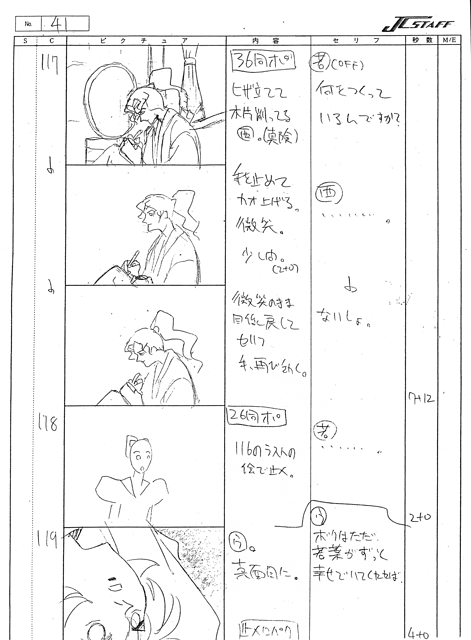 No. 41
J.C.STAFF
S
C
ピクチュア
内容
セリフ
秒数
M/E
117
36同ポ
ヒザ立てて
木片削ってる
(真険)
若(OFF)
何をつくって
いるんですか?
手を止めて
カオ上げる。
微笑。
少し間。
(2+0)
・・・・・・・。
微笑のまま
目線戻して
手、再び動く。
ないしょ。
7+12
118
26同ポ
116のラストの
絵で止メ。
若
・・・・・・。
2+0
119
真面目に。
ボクはただ
若菜がずっと
幸せでいてくれれば
止メ口パク
4+0